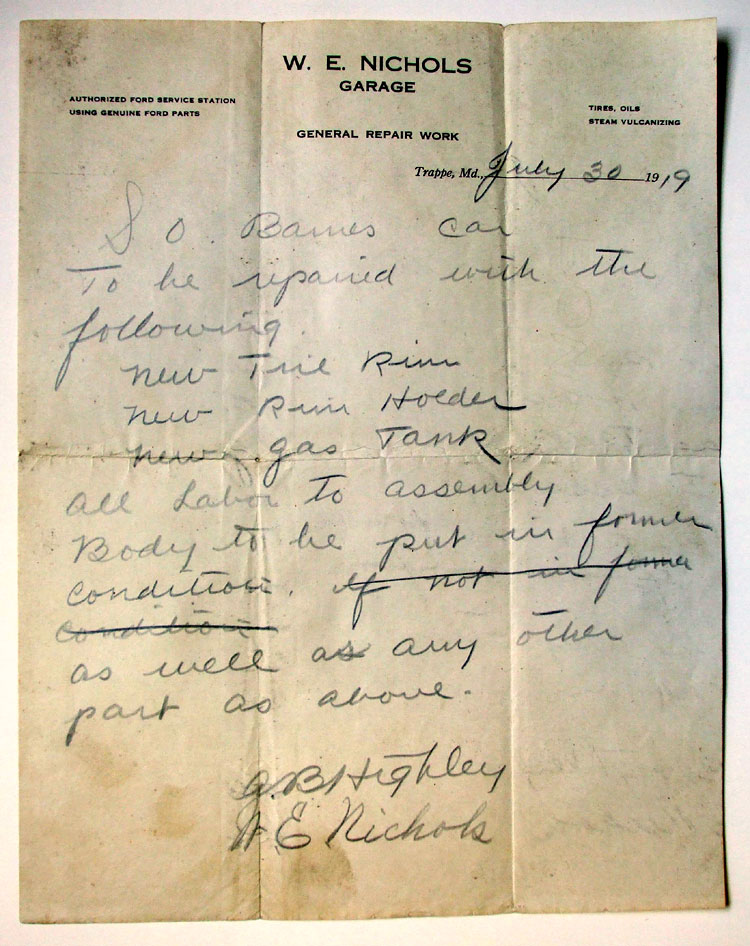 W. E. NICHOLS
GARAGE
AUTHORIZED FORD SERVICE STATION
USING GENUINE FORD PARTS
TIRES, OILS
STEAM VULCANIZING
GENERAL REPAIR WORK
Trappe, Md., July 30 1919
S O. Barnes car
To be repaired with the
following.
new Tire Rim
new Rim Holder
new gas Tank
all Labor To assembly
Body to be put in former
condition. If not in former
condition
as well as any other
part as above.
A.B Highley
W E Nichols